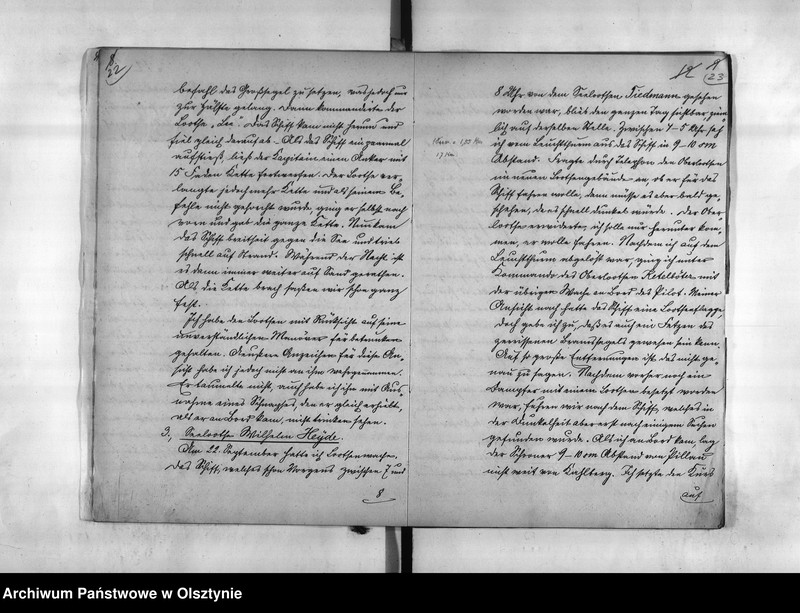 22
befahl das Großsegel zu setzen, was jedoch nur
zur Hälfte gelang. Dann kommandirte der
Lootse „Lee“. Das Schiff kam nicht herum und
fiel gleich darauf ab. Als das Schiff ein paarmal
aufstieß, ließ der Kapitain einen Anker mit
15 Faden Kette fortwerfen. Der Lootse ver-
langte jedoch mehr Kette und als seinem Be-
fehle nicht gehorcht wurde, ging er selbst nach
vorn und gab die ganze Kette. Nun kam
das Schiff breitseit gegen die See und trieb
schnell auf Strand. Während der Nacht ist
es dann immer weiter auf Sand gerathen.
Als die Kette brach saßen wir schon ganz
fest.
Ich habe den Lootsen mit Rücksicht auf seine
unverständlichen Manöver für betrunken
gehalten. Aeussere Anzeichen für diese An-
sicht habe ich jedoch nicht an ihm wahrgenommen.
Er taumelte nicht, auch habe ich ihn mit Aus-
nahme eines Schnapses, den er gleich erhielt,
als er an Bord kam, nicht trinken sehen.
3., Seelootse Wilhelm Heyde.
Am 22. September hatte ich Lootsenwache.
Das Schiff, welches schon Morgens zwischen 7 und
8
12
23
8 Uhr von dem Seelootsen Tiedmann gesehen
worden war, blieb den ganzen Tag sichtbar ziem-
lich auf derselben Stelle. Zwischen 4-5 Uhr sah
ich vom Leuchtthurm aus das Schiff in 9-10 sm
Abstand. Fragte durch Telephon den Oberlootsen
im neuen Lootsengebäude an, ob er für das
Schiff fahren wolle, dann müsse es aber bald ge-
schehen, da es schnell dunkel würde. Der Ober-
lootse erwiderte, ich solle nur herunter kom-
men, er wolle fahren. Nachdem ich auf dem
Leuchtthurm abgelöst war, ging ich unter
Kommando des Oberlootsen mit
der übrigen Wache an Bord des Pilot. Meiner
Ansicht nach hatte das Schiff eine Lootsenflagge,
doch gebe ich zu, daß es auch ein Fetzen des
zerrissenen Bramsegels gewesen sein kann.
Auf so große Entfernungen ist das nicht ge-
nau zu sagen. Nachdem vorher noch ein
Dampfer mit einem Lootsen besetzt worden
war, fuhren wir nach dem Schiff, welches in
der Dunkelheit aber erst nach einigem Suchen
gefunden wurde. Als ich an Bord kam, lag
der Schooner 9-10 sm Abstand von Pillau
nicht weit von Kahlberg. Ich setzte den Kurs
auf
Archiwum Państwowe w Olsztynie